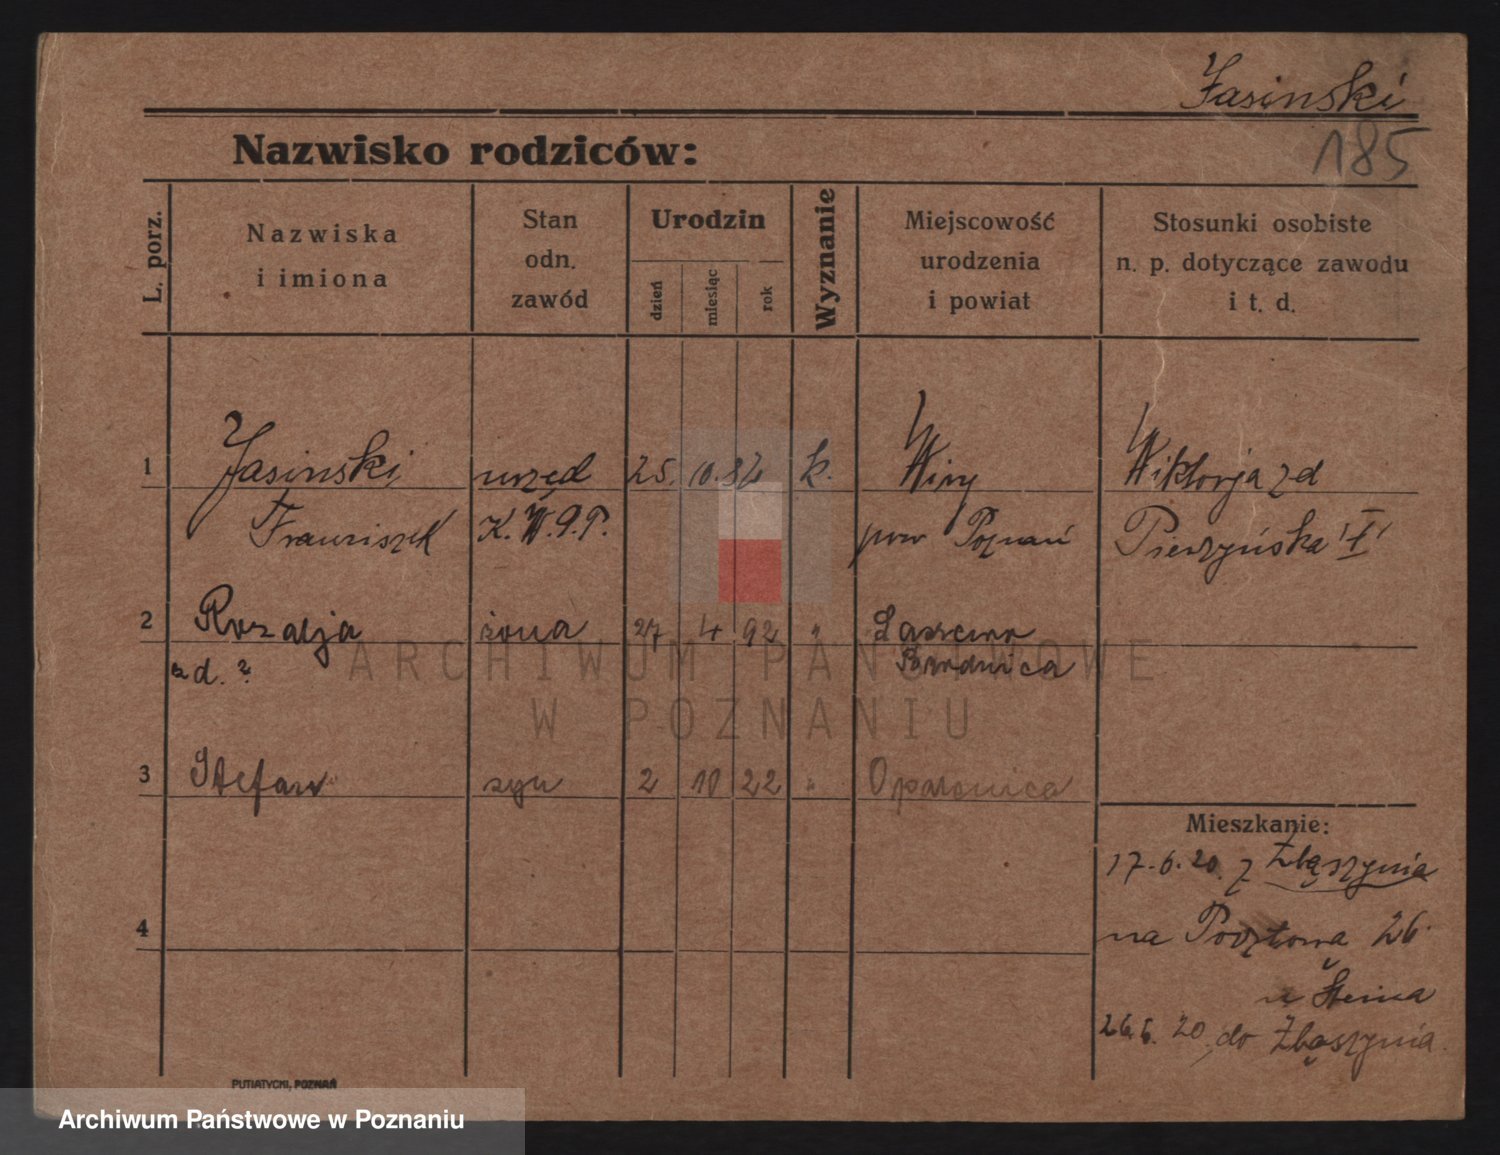 Jasinski
185
Nazwisko rodziców:
L. porz.
Nazwiska
i imiona
Stan
odn.
zawód
Urodzin
dzień
miesiąc
rok
Wyznanie
Miejscowość
urodzenia
i powiat
Stosunki osobiste
n. p. dotyczące zawodu
i t. d.
1 Jasinski urzęd 25. 10. 84 k. Wiry Wiktorja zd
Franciszek K.W.P.P. pow Poznań
2 Rozalja żona 27 4 92 " 
zd. ? Brodnica
ARCHIWUM PAŃSTWOWE
W POZNANIU
3 Stefan syn 2 10 22 " Opalenica
Mieszkanie:
17.6.20. z Zbąszynia
4 na Pocztowa 26.
u
26.6.20 do Zbąszynia.
PUTIATYCKI, POZNAŃ
Archiwum Państwowe w Poznaniu